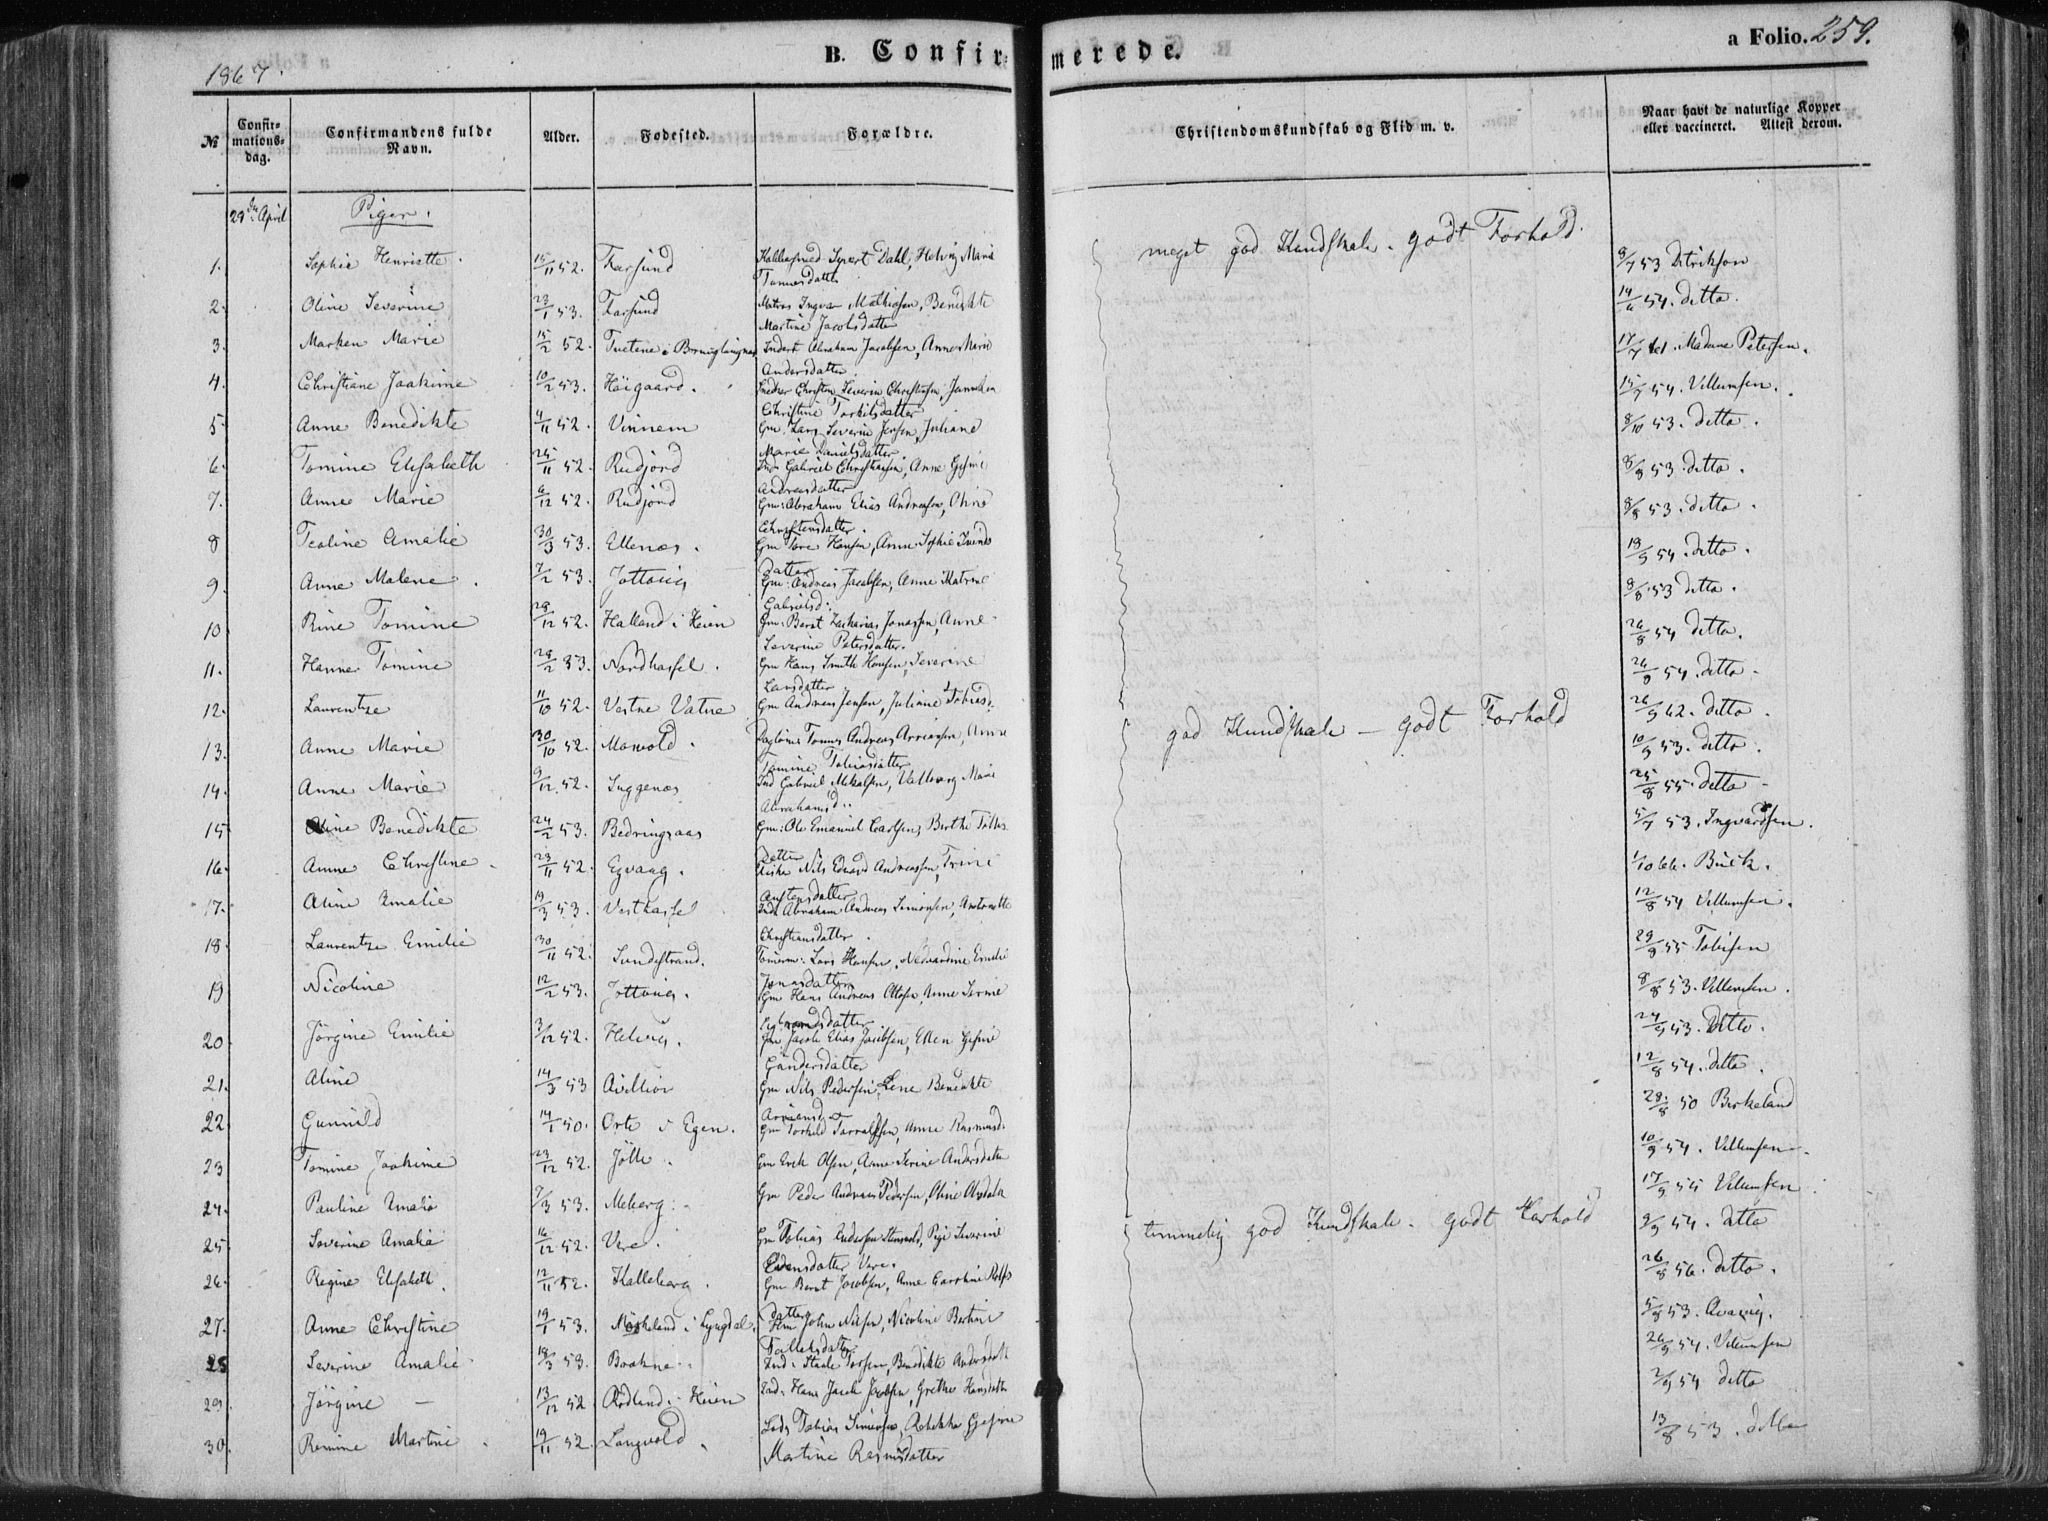 1867.
B. Confirmerede.
a Folio. 259.
№
Confir-mations-dag.
Confirmandens fulde Navn.
Alder.
Fødested.
Forældre.
Christendomskundskab og Flid m. v.
Naar havt de naturlige Kopper eller vaccineret. Attest derom.
29de April
Piger.
meget god Kundskab. godt Forhold.
1. Sophie Henriette. 15/11 52. Farsund Sivert Dahl, Helvig Marie Tønnesdatter 9/7 53 Ditrikson
2. Oline Severine 23/1 53. Farsund Matros Ingvar Mathiasen, Benedikte Martine Jacobsdatter 14/6 54. ditto.
3. Marken Marie 15/2 52. Inderst Abraham Jacobsen, Anne Marie Andersdatter 17/7 61. Madame Petersen.
4. Christiane Joakime 10/2 53. Høigaard. Christen Severin Christiansen, Janneken Christine Torkilsdatter 15/7 54. Villumsen.
5 Anne Benedikte 4/11 52. Vinnem Gm. Lars Severin Jensen, Juliane Marie Danielsdatter 8/10 53. ditto.
6. Tomine Elisabeth 25/11 52. Rudjord Ind. Gabriel Christiansen, Anne Gesine Andreasdatter 8/8 53. ditto.
7. Anne Marie 6/12 52. Rudjord Gm: Abraham Elias Andreasen, Oline Christensdatter. 8/8 53. ditto.
8 Teoline Amalie 30/3 53. Ellenæs. Gm Tore Hansen, Anne Sophie datter 19/9 54. ditto.
9. Anne Malene. 7/2 53. Jottvig Gm: Andreas Jacobsen, Anne Katrine Gabrielsd: 8/8 53 ditto.
10 Rine Tomine 28/12 52. Halland i Heien Gm: Bernt Zacharias Jonassen, Anne Severine Petersdatter. 26/8 54 ditto.
11. Hanne Tomine 28/2 53. Nordhassel. Gm Hans Smith Hansen, Severine Larsdatter 26/8 54. ditto.
12. Laurentze 11/10 52. Vestre Vatne Gm Andreas Jensen, Juliane Tobiasd. 26/9 62. ditto.
god Kundskab - godt Forhold
13. Anne Marie 30/10 52. Marvold. Tønnes Andreas Arriansen, Anne Tomine Tobiasdatter 10/9 53. ditto.
14. Anne Marie 9/12 52. Inggenæs Ind Gabriel Mikalsen, Valborg Marie Abrahamsd:. 25/8 55. ditto
15 Oline Benedikte 24/2 53. Bedringsaas Gm: Ole Emanuel Carlsen, Berthe datter 5/7 53. Ingvardsen.
16. Anne Christine. 23/11 52. Egvaag. Nils Edvard Andreassen, Trine Austensdatter 1/10 66. Buck.
17. Aline Amalie 19/3 53. Vesthassel Ind Abraham Andreas Simonsen, Antonette Christiansdatter. 12/8 54 Villumsen.
18. Laurentze Emilie 30/11 52. Sundestrand. Lars Hansen, Emelie Jonasdatter 29/9 55 Tobisen
19 Nicoline 12/2 53. Jottvig. Gm Hans Andreas Olsen, Anne Serine datter 8/8 53. Villumsen.
20. Jørgine Emilie 3/12 52. Helvig. Gm Jacob Elias Jacobsen, Ellen Gesine Gundersdatter 24/9 53. Ditto.
21. Aline 14/3 53 Gm Nils Pedersen, Lene Benedikte Arriansd. 12/8 54. ditto.
22 Gunnild 14/1 50. Orte i Egen. Gm Torkild Torralfsen, Anne Rasmusd. 28/8 50 Birkeland
23 Tomine Joakime 23/12 52. Jølle. Gm Erik Olsen, Anne Serine Andersdatter 10/9 54. Villumsen.
24. Pauline Amalie 7/3 53. Meberg. Gm Peder Andreas Pedersen, Oline Olsdatter 17/9 54 Villumsen
timmelig god Kundskab. godt Forhold
25. Severine Amalie 16/12 52. Vere. Gm Tobias Andersen, Pige Severine Evensdatter Vere. 9/9 54. ditto
26. Regine Elisabeth. 12/11 52. Kalleberg. Gm Bernt Jacobsen, Anne Caroline datter 26/8 56. ditto.
27. Anne Christine 19/1 53. i Lyngdal. Gm John Nilsen, Nicoline Bertine datter 5/8 53.
28 Severine Amalie 18/3 53. Ind: Staale Torsen, Benedikte Andersdatt 26/9 54. Villumsen
29. Jørgine 13/12 52 Rødland i Heien Ind. Hans Jacob Jacobsen, Grethe 2/9 54 ditto
30. Remine Martine. 19/11 52. Langvold. Tobias Simonsen, Rebekka Gesine 13/8 53. ditto
Martine Rasmusdatter